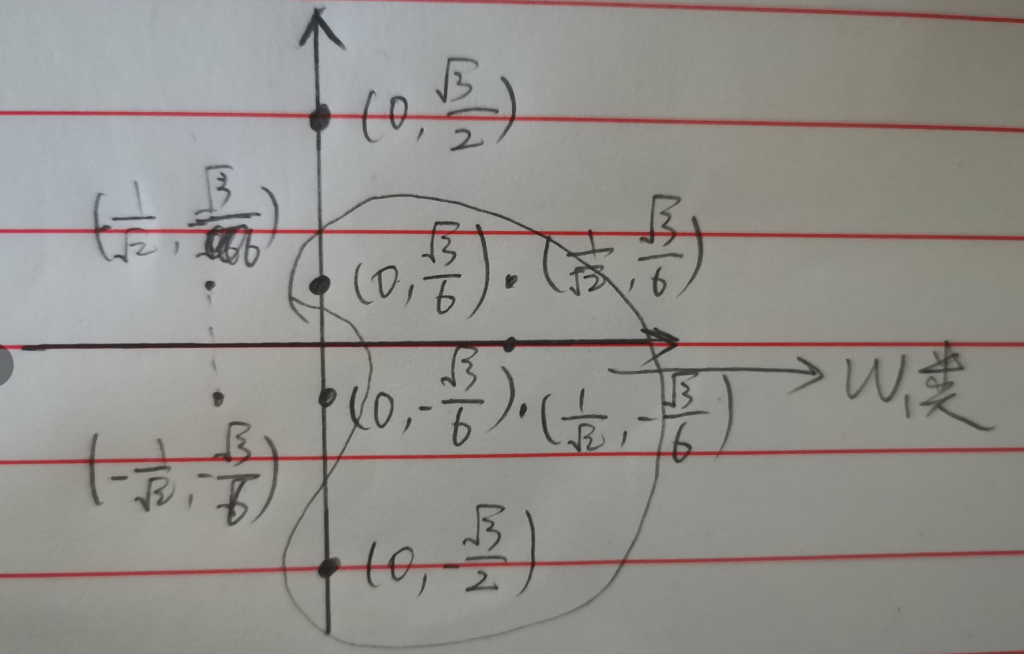 (0, √3/2)
(-1/√2, √3/6)
(0, √3/6)
(1/√2, √3/6)
W₁类
(0, -√3/6)
(1/√2, -√3/6)
(-1/√2, -√3/6)
(0, -√3/2)